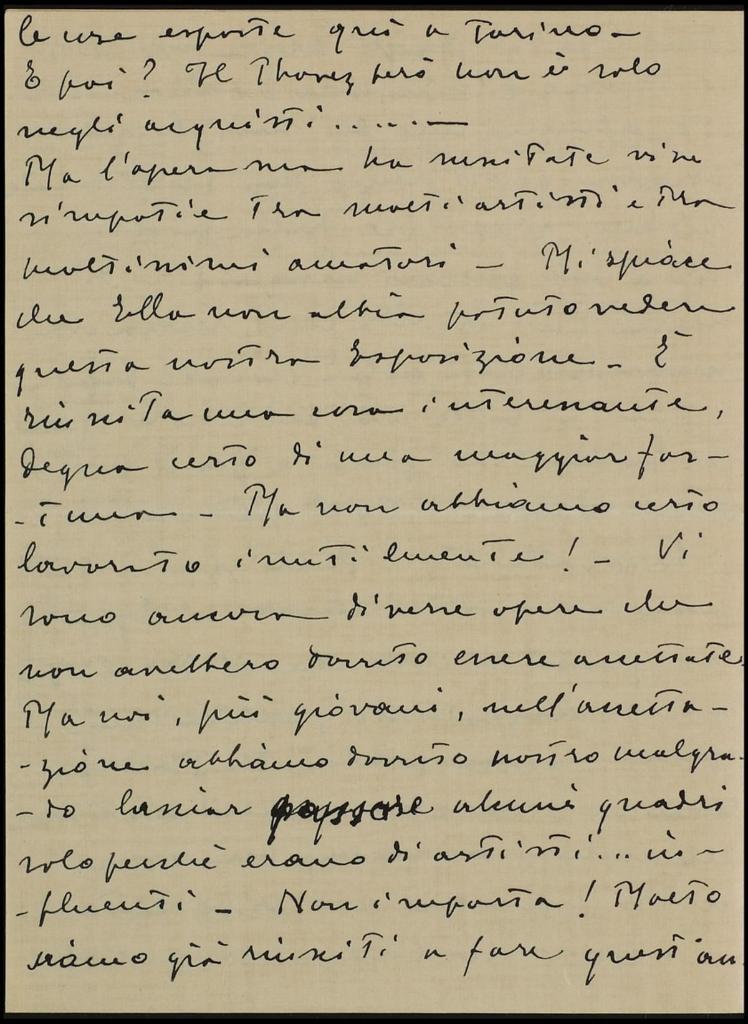 le cose esposte quì a Torino -
E poi? Il Thovez però non è solo
negli acquisti..... -
Ma l'opera sua ha suscitate vive
simpatie tra molti artisti e tra
moltissimi amatori - Mi spiace
che Ella non abbia potuto vedere
questa nostra Esposizione - È
riuscita una cosa interessante,
degna certo di una maggior for-
-tuna - Ma non abbiamo certo
lavorato inutilmente! - Vi
sono ancora diverse opere che
non avrebbero dovuto essere accettate.
Ma noi, più giovani, nell'accetta-
-zione abbiamo dovuto nostro malgra-
-do lasciar passare alcuni quadri
solo perchè erano di artisti... in-
-fluenti - Non importa! Molto
siamo già riusciti a fare quest'an